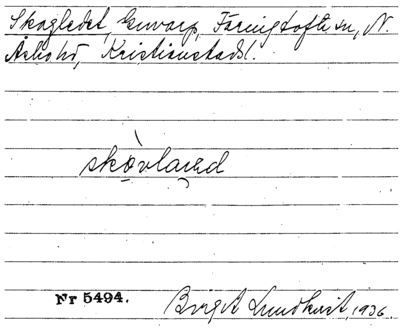 Skogledet, Envarp, Färingtofta sn, N.
Åsbo hd, Kristianstads l.
skòvlaɩed
Nr 5494.
Birgit Lundkvist, 1936.